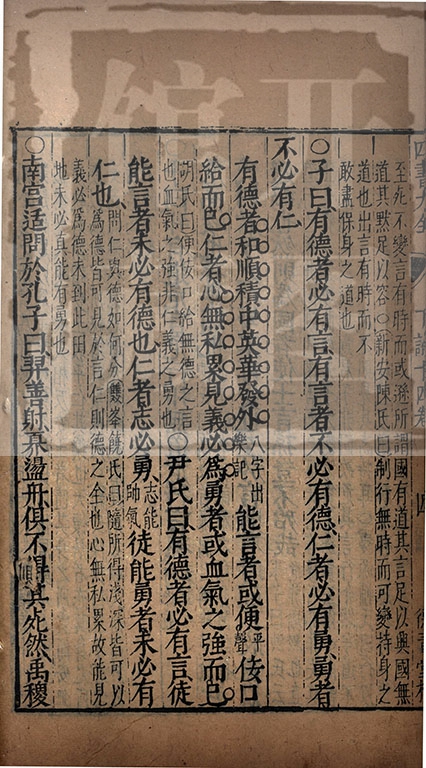 至死不變言有時而或孫所謂國有道其言足以興國無
道其黙足以容○新安陳氏曰制行無時而可變持身之
道也出言有時而不
敢盡保身之道也
○子曰有德者必有言有言者不必有德仁者必有勇勇者
不必有仁
有德者和順積中英華發外八字出樂記能言者或便平聲佞口
給而已仁者心無私累見義必為勇者或血氣之強而已
胡氏曰便佞口給無德之言
也血氣之強非仁義之勇也○尹氏曰有德者必有言徒
能言者未必有德也仁者志必勇志能帥氣徒能勇者未必有
仁也問仁與德如何分雙峯饒氏曰隨所得淺深皆可以
為德皆可見於言仁則德之全也心無私累故能見
義必為德未到此田
地未必真能有勇也
○南宮适問於孔子曰羿善射奡盪舟俱不得其死然禹稷